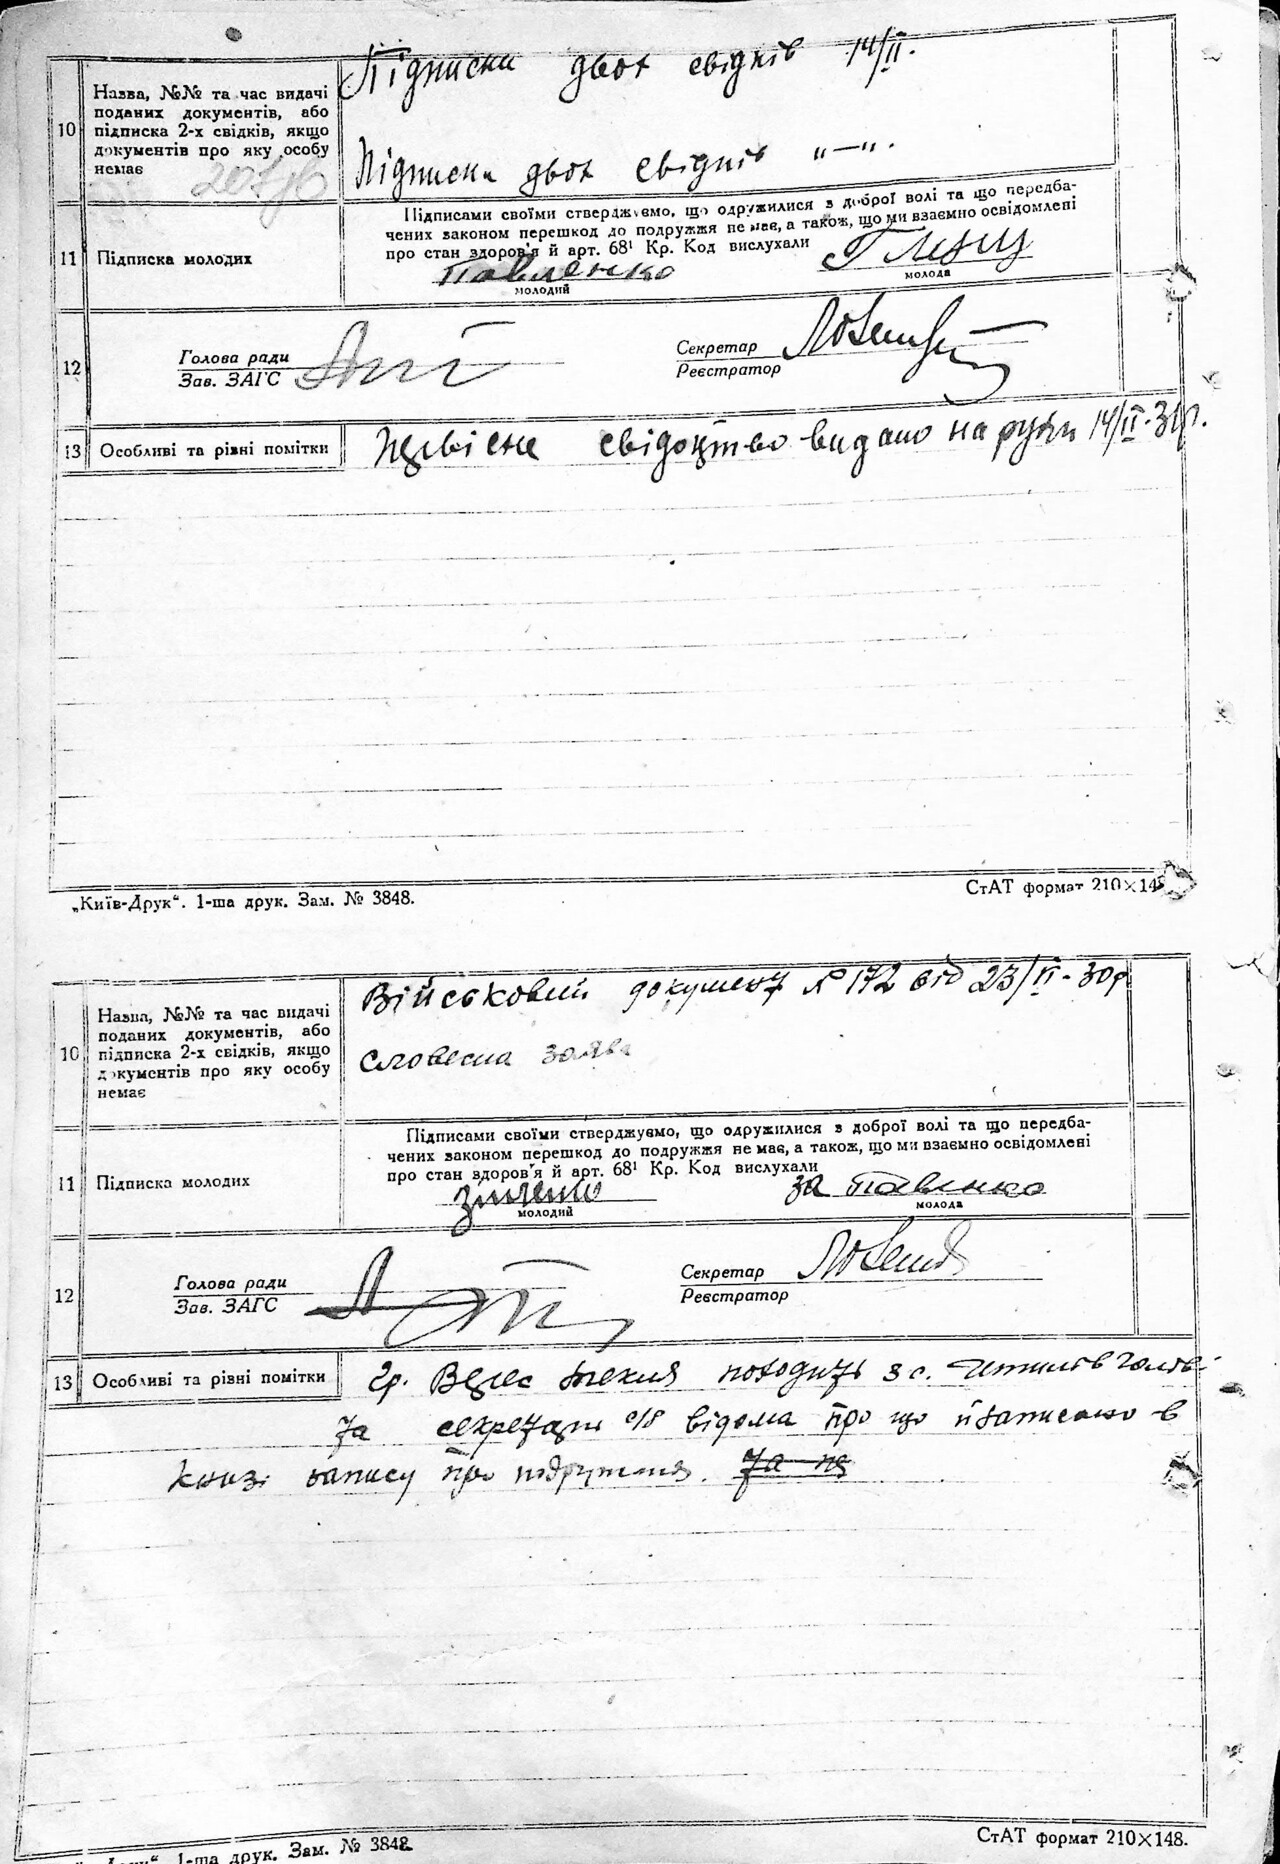 Підписки двох свідків 14/II.
10
Назва, №№ та час видачі
поданих документів, або
підписка 2-х свідків, якщо
документів про яку особу
немає
Підписки двох свідків "—".
11
Підписка молодих
Підписами своїми стверджуємо, що одружилися з доброї волі та що передба-
чених законом перешкод до подружжя немає, а також, що ми взаємно освідомлені
про стан здоров'я й арт. 68¹ Кр. Код вислухали
Павленко
молодий
молода
12
Голова ради
Зав. ЗАГС
Секретар
Реєстратор
13
Особливі та різні помітки
Первісне свідоцтво видано на руки 14/II-31р.
„Київ-Друк“. 1-ша друк. Зам. № 3848.
СтАТ формат 210×148
10
Назва, №№ та час видачі
поданих документів, або
підписка 2-х свідків, якщо
документів про яку особу
немає
Військовий документ № 172 від 23/II-30р
Словесна заява
11
Підписка молодих
Підписами своїми стверджуємо, що одружилися з доброї волі та що передба-
чених законом перешкод до подружжя немає, а також, що ми взаємно освідомлені
про стан здоров'я й арт. 68¹ Кр. Код вислухали
Зінченко
молодий
за Павленко
молода
12
Голова ради
Зав. ЗАГС
Секретар
Реєстратор
13
Особливі та різні помітки
Гр. Верес Текля походить з с.
та секретарю с/р відома про що й записано в
книзі запису про подружжя. та не
1-ша друк. Зам. № 3848.
СтАТ формат 210×148.